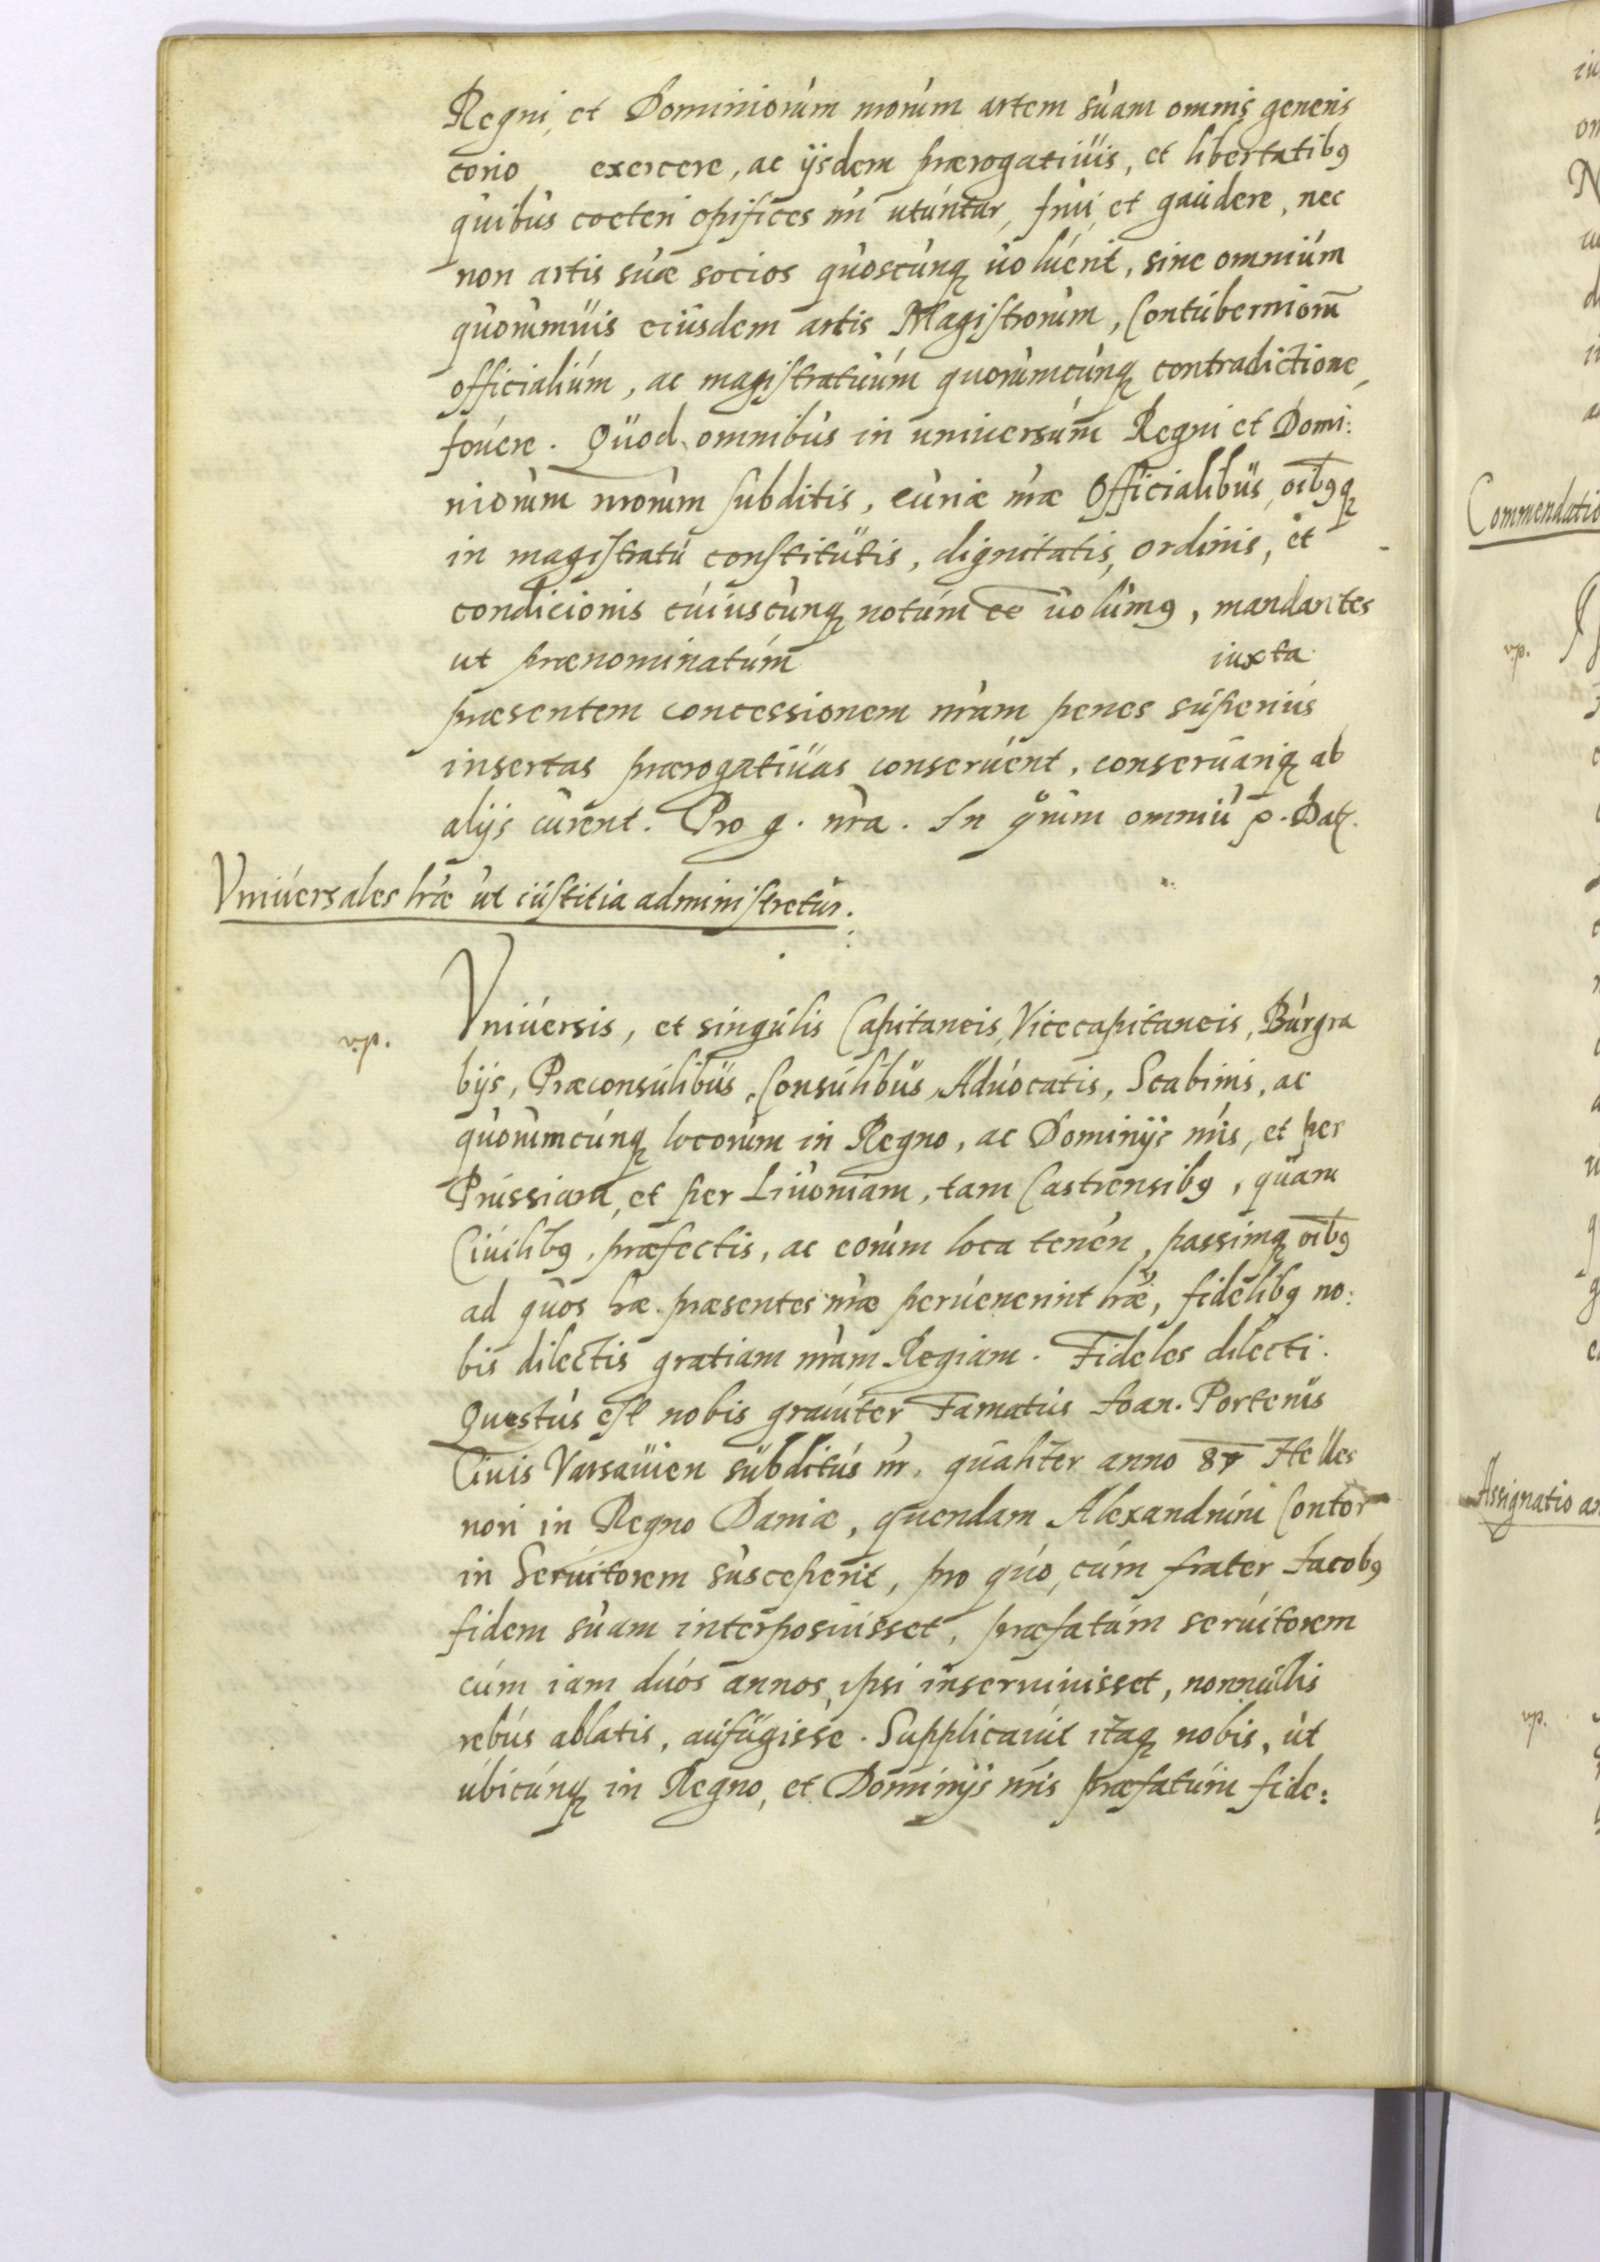 Regni, et Dominiorum nrorum artem suam omnis generis
corio exercere, ac ijsdem prærogatiuis, et libertatibꝯ
quibus coeteri opifices nri utuntur, frui, et gaudere, nec
non artis suæ socios quoscunqꝫ uoluerit, sine omnium
quorumuis eiusdem artis Magistrorum, Contuberniorū
officialium, ac magistratuum quorumcunqꝫ contradictione,
fouere. Quod omnibus in uniuersum Regni et Domi:
niorum nrorum subditis, curiæ nræ Officialibus, oībꝯqꝫ
in magistratu constitutis, dignitatis, ordinis, et
condicionis cuiuscunqꝫ notum ēe uolumꝯ, mandantes
ut prænominatum iuxta
præsentem concessionem nram penes superius
insertas prærogatiuas conseruent, conseruariqꝫ ab
alijs curent. Pro g. nra. In qrum omniū p. Datꝫ.
Vniuersales lræ ut iustitia administretur.
v.p.
Vniuersis, et singulis Capitaneis, Vicecapitaneis, Burgra
bijs, Præconsulibus, Consulibus, Aduocatis, Scabinis, ac
quorumcunqꝫ locorum in Regno, ac Dominijs nris, et per
Prussiam, et per Liuoniam, tam Castrensibꝯ, quam
Ciuilibꝯ, præfectis, ac eorum loca tenen, passimqꝫ oībꝯ
ad quos hæ præsentes nræ peruenerint lræ, fidelibꝯ no:
bis dilectis gratiam nram Regiam. Fideles dilecti.
Questus est nobis grauiter Famatus Ioan. Portenus
Ciuis Varsauien subditus nr, qualiter anno 87 Helles
nori in Regno Daniæ, quendam Alexandrum Contor
in Seruitorem susceperit, pro quo, cum frater Iacobꝯ
fidem suam interposuisset, præfatum seruitorem
cum iam duos annos, ipsi inseruiuisset, nonnullis
rebus ablatis, aufugisse. Supplicauit itaqꝫ nobis, ut
ubicunqꝫ in Regno, et Dominijs nris præfatum fide:
Commendatio
vp.
Assignatio
vp.